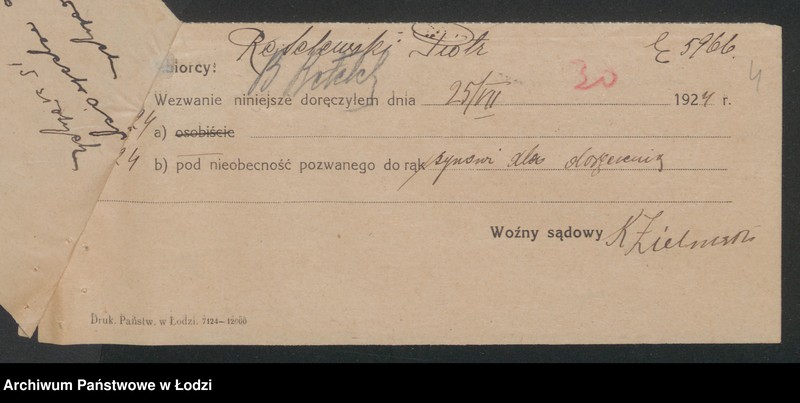 Piotr E 5966.
biorcy:
30
4
Wezwanie niniejsze doręczyłem dnia 25/VII 1924 r.
24 a) osobiście
24 b) pod nieobecność pozwanego do rąk synowi dla doręczenia
Woźny sądowy K Zieliński
15 złotych
Druk. Państw. w Łodzi. 7124—12000
Archiwum Państwowe w Łodzi